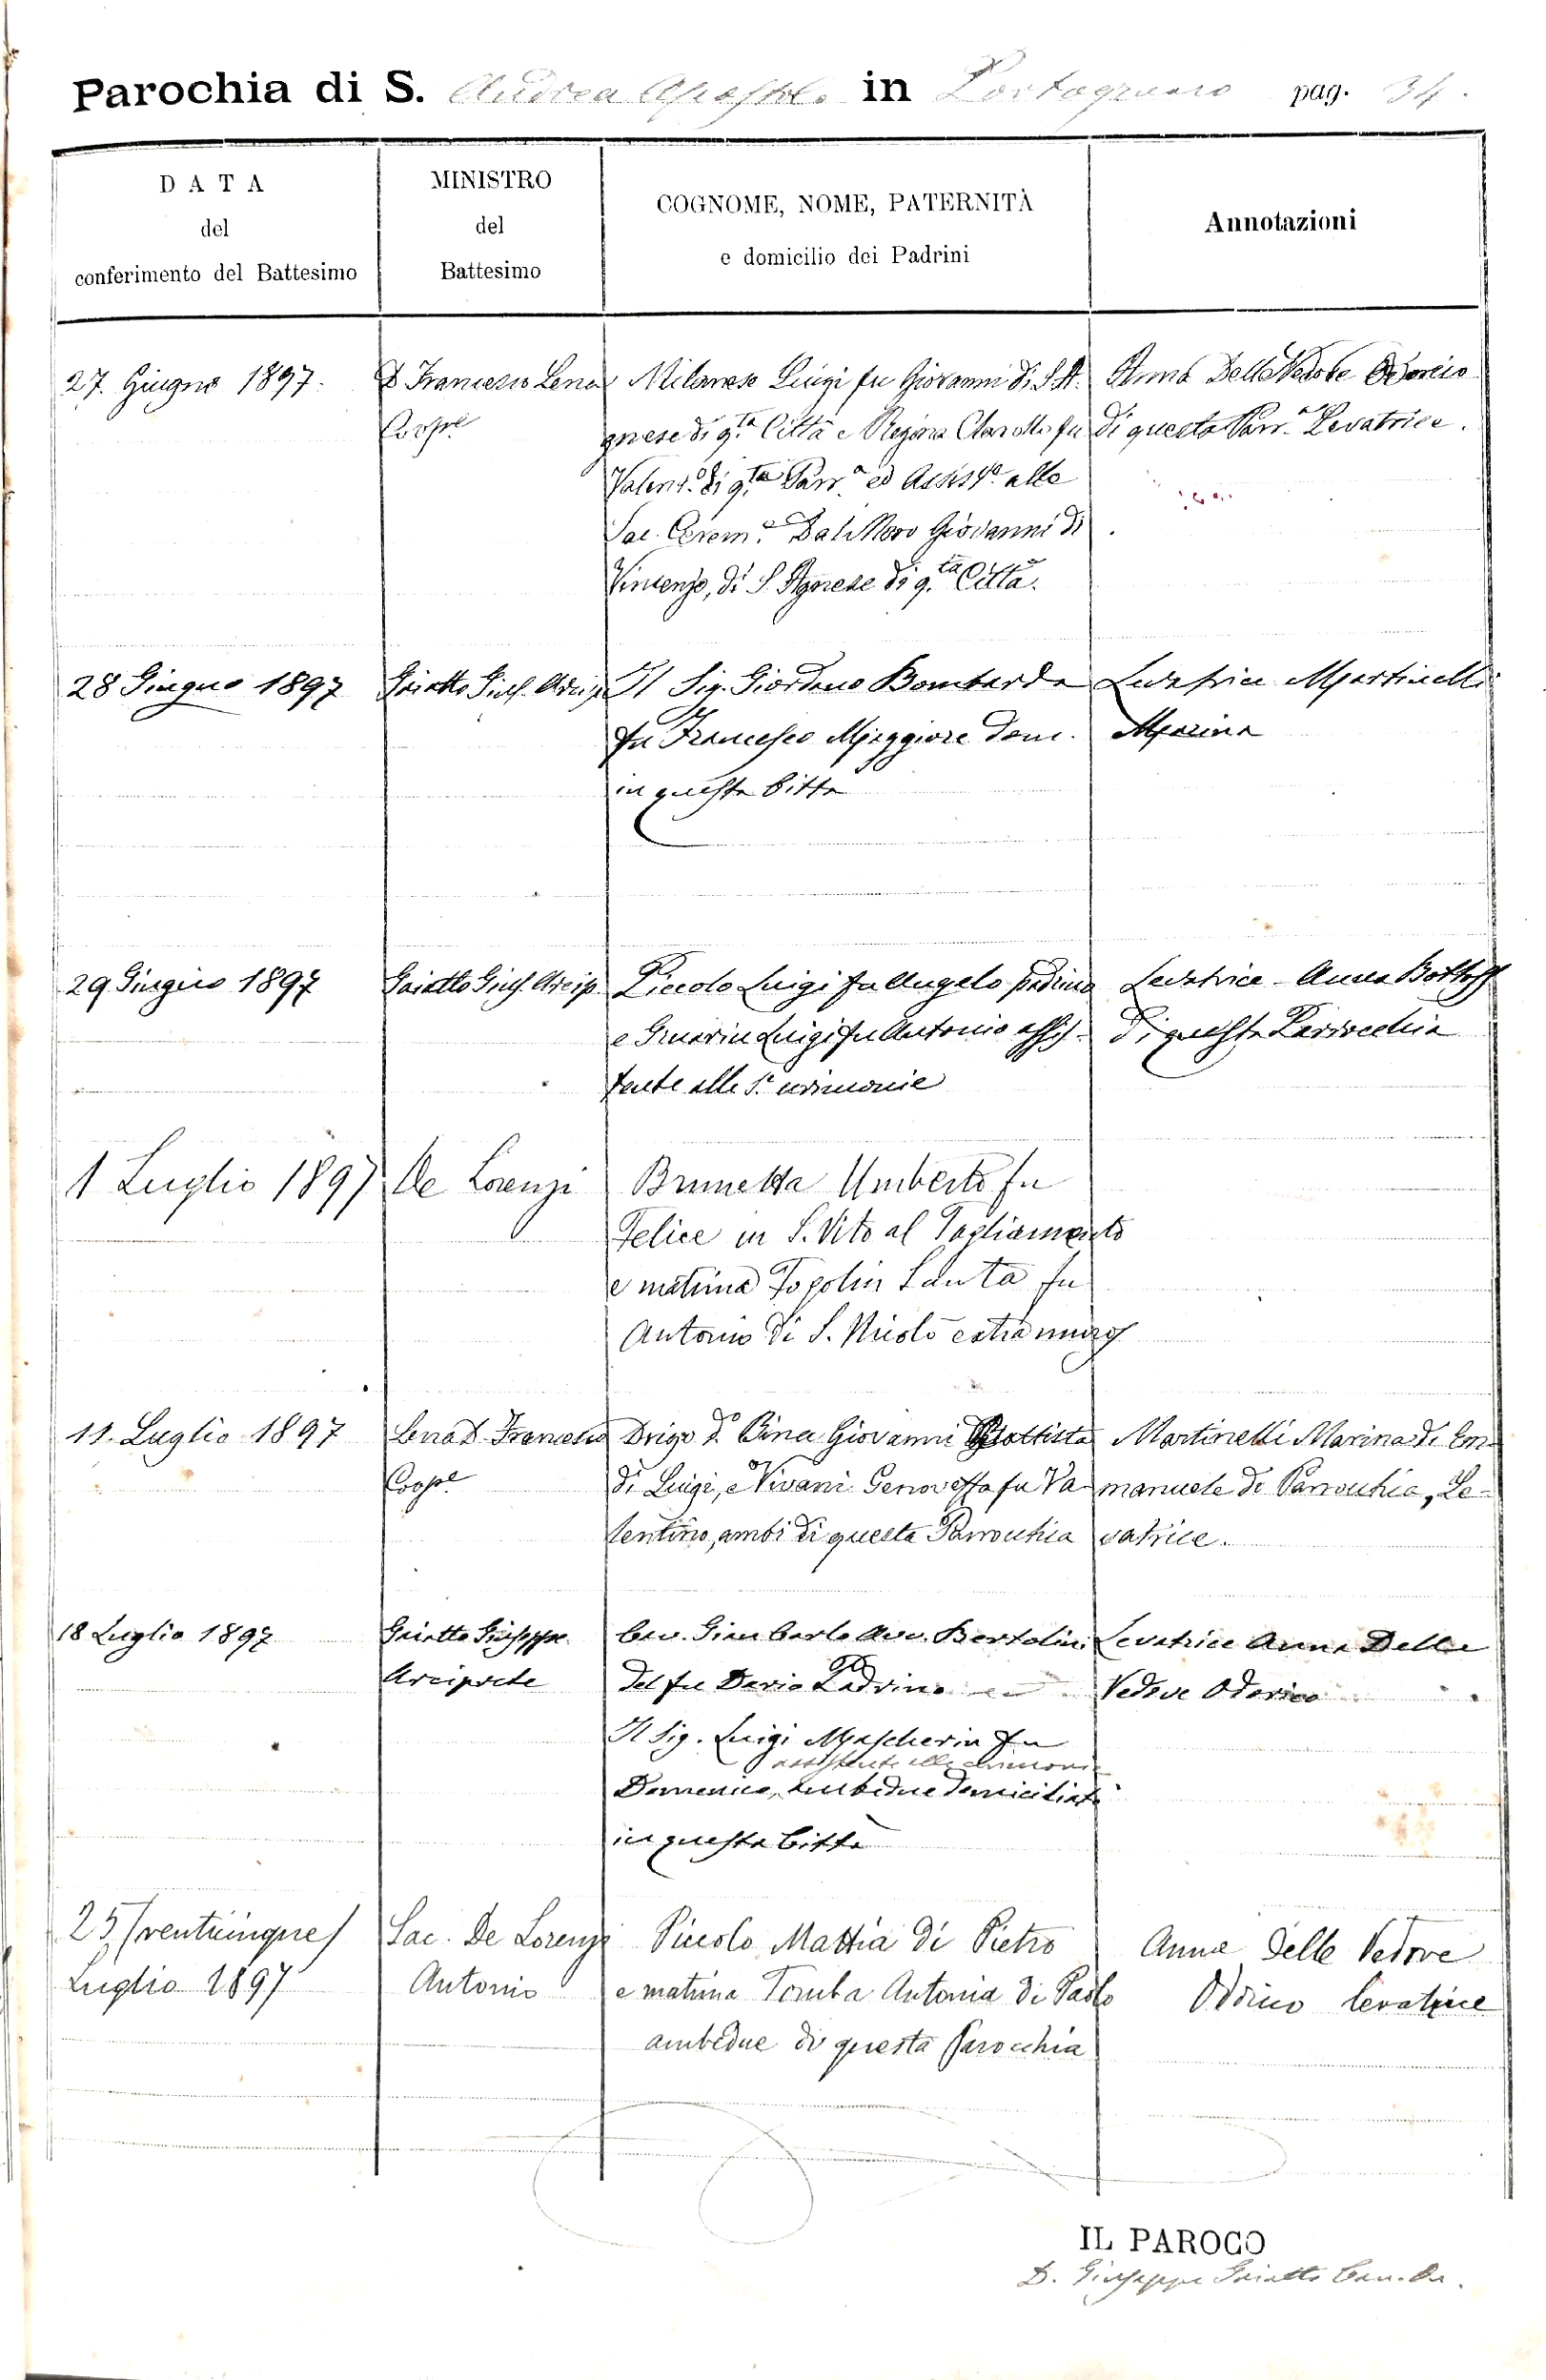 Parochia di S. Andrea Apostolo in Portogruaro pag. 34.
DATA
del
conferimento del Battesimo
MINISTRO
del
Battesimo
COGNOME, NOME, PATERNITÀ
e domicilio dei Padrini
Annotazioni
27. Giugno 1897.
D Francesco Lena
Coope
Milanese Luigi fu Giovanni di S. A.
gnese di q.ta Città e Regina fu
Valent. di q.ta Parr.a ed Assist.e alle
Sac. Cerem.e Dal Moro Giovanni di
Vincenzo, di S. Agnese di q.ta Città.
Anna Delle Vedove Odorico
di questa Parr.a Levatrice.
28 Giugno 1897
Gaiatto Gius. Arcip.
Il Sig. Giordano Bombarda
fu Francesco Maggiore dom.
in questa Città
Levatrice Martinelli
Marina
29 Giugno 1897
Gaiatto Gius. Arcip.
Piccolo Luigi fu Angelo padrino
e Luigi fu Antonio assis-
tente alle S.e cerimonie
Levatrice - Anna
di questa Parrocchia
1 Luglio 1897
De Lorenzi
Brunetta Umberto fu
Felice in S. Vito al Tagliamento
e matrina Santa fu
Antonio di S. Nicolò extra muros
11. Luglio 1897
Lena D. Francesco
Coope
Drigo d.o Pina Giovanni Battista
di Luigi, e Vivani Genoveffa fu Va
lentino, ambi di questa Parrocchia
Martinelli Marina di Em-
manuele di Parrocchia, Le-
vatrice.
18 Luglio 1897
Gaiatto Giuseppe
Arciprete
Cav. Gian Carlo Avv. Bertolini
del fu Dario Padrino
Il Sig. Luigi Mascherin fu
assistente alle cerimonie
Domenico, ambedue domiciliati
in questa Città
Levatrice Anna Delle
Vedove Odorico
25 (venticinque)
Luglio 1897
Sac. De Lorenzi
Antonio
Piccolo Mattia di Pietro
e matrina Tomba Antonia di Paolo
ambedue di questa parocchia
Anna Delle Vedove
Odorico levatrice
IL PAROCO
D. Giuseppe Gaiatto